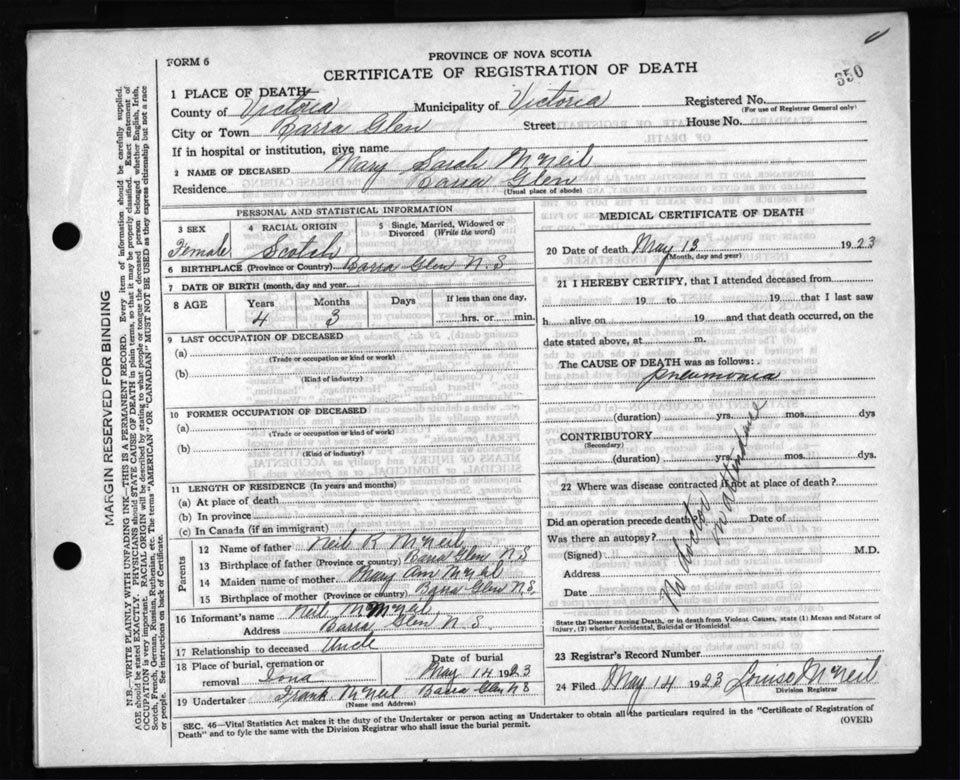 FORM 6
PROVINCE OF NOVA SCOTIA
CERTIFICATE OF REGISTRATION OF DEATH
350
1 PLACE OF DEATH
County of Victoria Municipality of Victoria Registered No.
(For use of Registrar General only)
City or Town Barra Glen Street House No.
If in hospital or institution, give name
2 NAME OF DECEASED Mary Sarah McNeil
Residence Barra Glen
(Usual place of abode)
PERSONAL AND STATISTICAL INFORMATION
3 SEX Female
4 RACIAL ORIGIN Scotch
5 Single, Married, Widowed or Divorced (Write the word)
6 BIRTHPLACE (Province or Country) Barra Glen N.S.
7 DATE OF BIRTH (month, day and year)
8 AGE Years 4 Months 3 Days If less than one day, hrs. or min.
9 LAST OCCUPATION OF DECEASED
(a)
(Trade or occupation or kind or work)
(b)
(Kind of industry)
10 FORMER OCCUPATION OF DECEASED
(a)
(Trade or occupation or kind of work)
(b)
(Kind of industry)
11 LENGTH OF RESIDENCE (In years and months)
(a) At place of death
(b) In province
(c) In Canada (if an immigrant)
Parents
12 Name of father Neil R McNeil
13 Birthplace of father (Province or country) Barra Glen N S
14 Maiden name of mother Mary Ann McNeil
15 Birthplace of mother (Province or country) Barra Glen N.S.
16 Informant's name Neil McNeil
Address Barra Glen N. S.
17 Relationship to deceased Uncle
18 Place of burial, cremation or removal Iona
Date of burial May 14 1923
19 Undertaker Frank McNeil Barra Glen N S
(Name and Address)
MEDICAL CERTIFICATE OF DEATH
20 Date of death May 13 1923
(Month, day and year)
21 I HEREBY CERTIFY, that I attended deceased from
19 to 19 that I last saw
h alive on 19 and that death occurred, on the
date stated above, at m.
The CAUSE OF DEATH was as follows:
pneumonia
(duration) yrs. mos. dys
CONTRIBUTORY
(Secondary)
(duration) yrs. mos. dys.
22 Where was disease contracted if not at place of death?
Did an operation precede death? Date of
Was there an autopsy?
(Signed) M.D.
Address
Date
No doctor in attendance
State the Disease causing Death, or in death from Violent Causes, state (1) Means and Nature of
Injury, (2) whether Accidental, Suicidal or Homicidal.
23 Registrar's Record Number
24 Filed May 14 1923 Louise McNeil
Division Registrar
SEC. 46—Vital Statistics Act makes it the duty of the Undertaker or person acting as Undertaker to obtain all the particulars required in the "Certificate of Registration of
Death" and to fyle the same with the Division Registrar who shall issue the burial permit. (OVER)
MARGIN RESERVED FOR BINDING
N.B.—WRITE PLAINLY WITH UNFADING INK—THIS IS A PERMANENT RECORD. Every item of information should be carefully supplied.
AGE should be stated EXACTLY. PHYSICIANS should state CAUSE OF DEATH in plain terms, so that it may be properly classified. Exact statement of
OCCUPATION is very important. RACIAL ORIGIN will be described by stating to what people or tongue the deceased person belonged whether English, Irish,
Scotch, French, German, Russian, Ruthenian, etc. The terms "AMERICAN" OR "CANADIAN" MUST NOT BE USED as they express citizenship but not a race
or people. See instructions on back of Certificate.